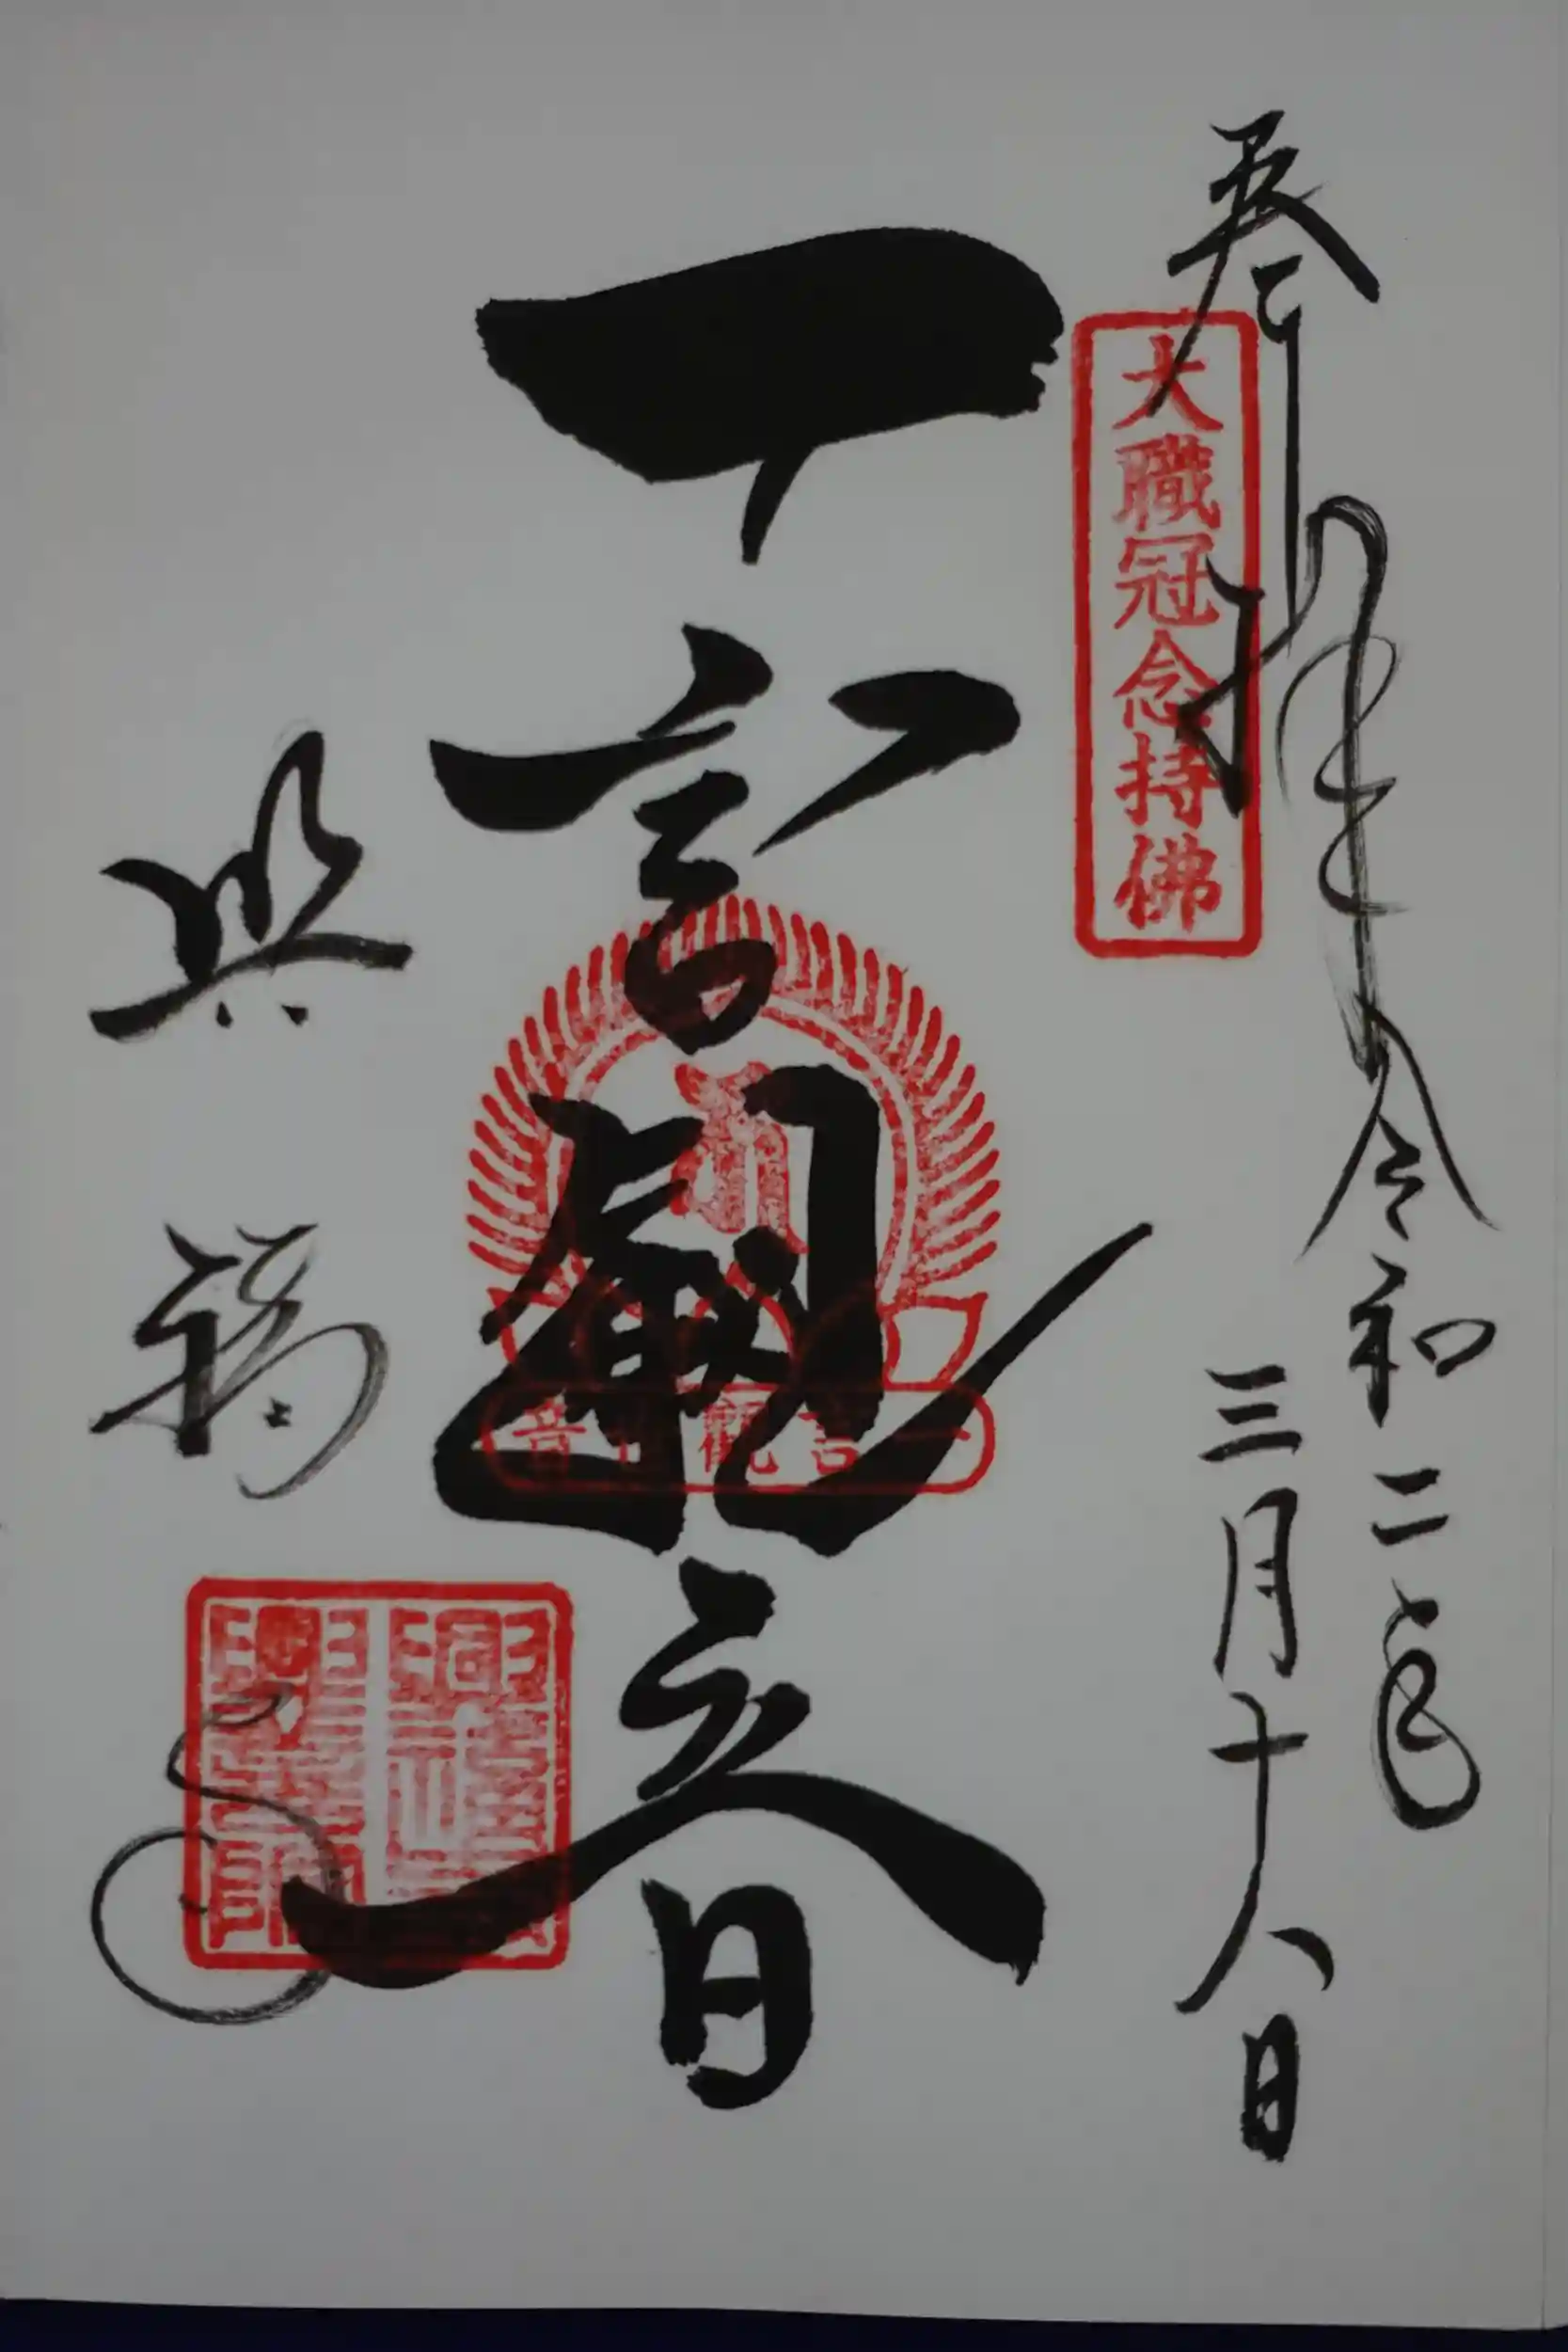 奉拝 令和二年
三月十八日
大職冠念持佛
一言觀音
一言觀世音
興福寺